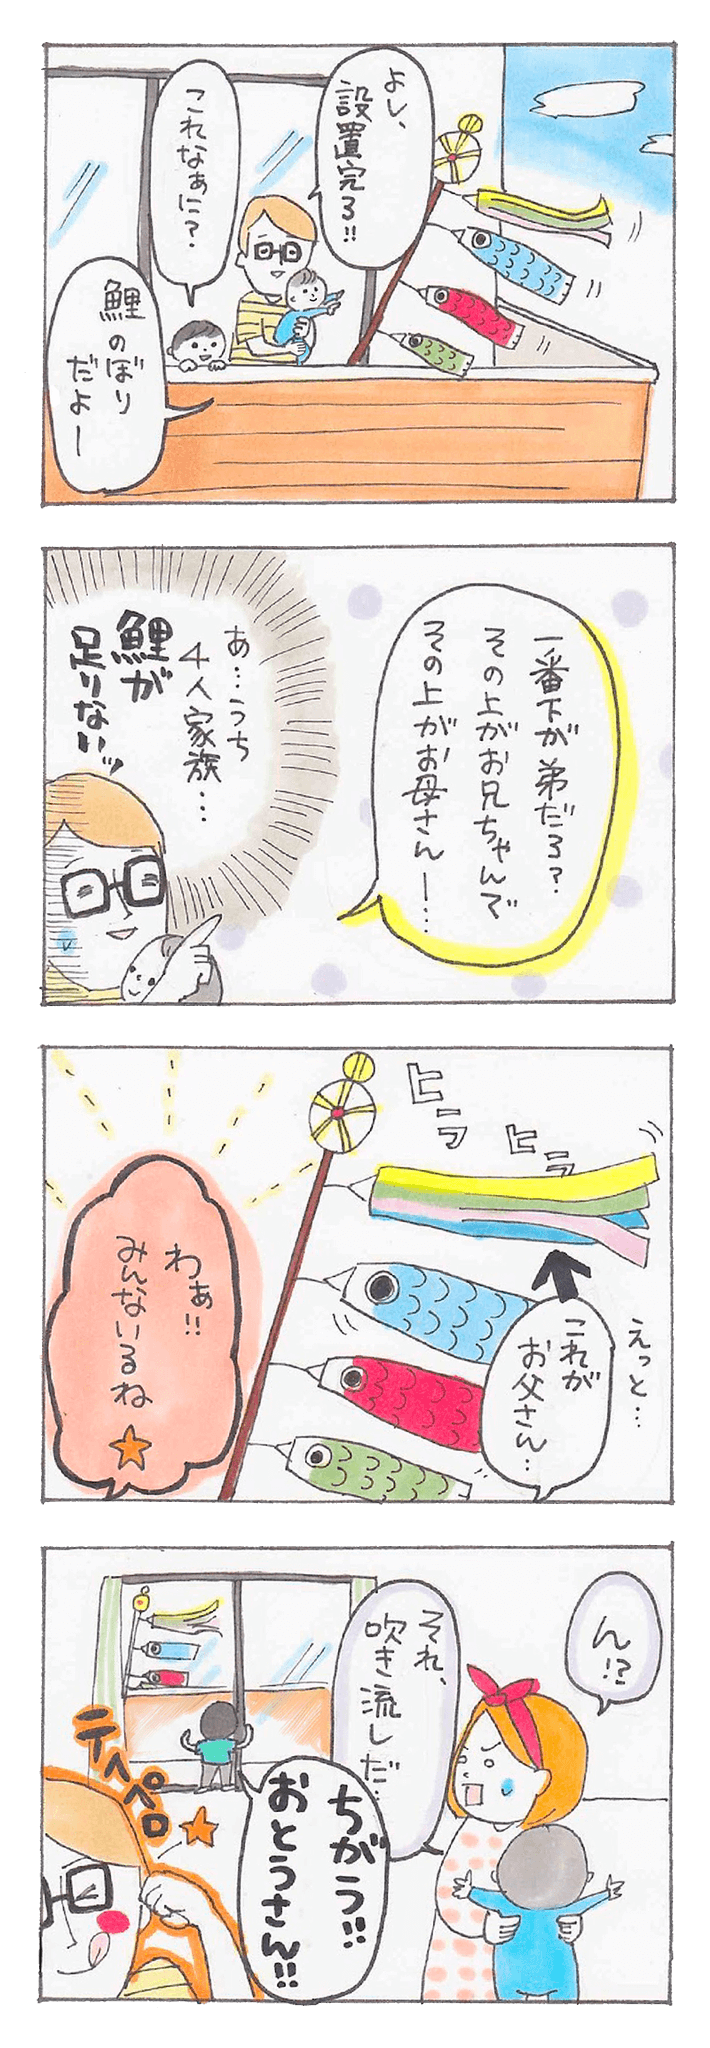 よし、
設置完了!!
これなぁに?
鯉のぼり
だよー
一番下が弟だろ?
その上がお兄ちゃんで
その上がお母さんー…
あ…うち
4人家族…
鯉が
足りないッ
ヒラ
ヒラ
えっと…
これが
お父さん…
わぁ!!
みんないるね
ん!?
それ、
吹き流しだ…
ちがう!!
おとうさん!!
テヘペロ